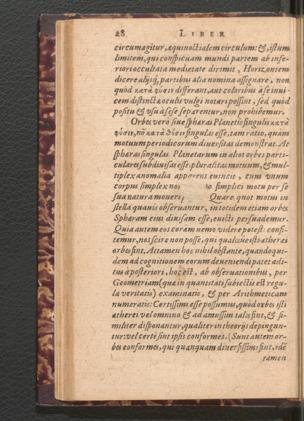 28 LIBER
circumagitur, æquinoctialem circulum: & istum
limitem, qui conspicuam mundi partem ab infe-
riori occultata medietate dirimit, Horizontem
dicere alijs, partibus alia nomina assignare, non
quòd κατὰ φύσιν differant, aut coloribus à se inui-
cem distincta oculis vulgi notari possint, sed quòd
positu & vsu à sese separentur, non prohibemur.
Orbes verò siue sphæras Planetis singulis κατὰ
φύσιν, nō κατὰ θέσιν singulis esse, tam ratio, quàm
motuum periodicorum diuersitas demonstrat. At
sphæras singulas Planetarum in alios orbes parti-
culares subdiuisas esse, pluralitas motuum, & mul-
tiplex anomalia apparens euincit, cum vnum
corpus simplex non simplici motu per se
sua natura moueri. Quare quot motus in
stella quauis obseruantur, in totidem etiam orbes
Sphæram eius diuisam esse, euicti persuademur.
Quia autem eos coram nemo videre potest: confi-
temur, nos scire non posse, qui quales ue isti ætherei
orbes sint. Attamen hoc nihil obstante, quandoqui-
dem ad cognitionem eorum deueniendi patet adi-
tus à posteriori, hoc est, ab obseruationibus, per
Geometriam (quæ in quantitatis subiectis est regu-
la veritatis) examinatis, & per Arithmeticam
numeratis: Certissimi esse possumus, quòd orbes isti
ætherei vel omnino & ad amussim tales sint, & si-
militer disponantur, qualiter in theorijs depingun-
tur: vel certè sint ipsis conformes. (Sunt autem or-
bes conformes, qui quanquam diuersissimi sint, idē
tamen